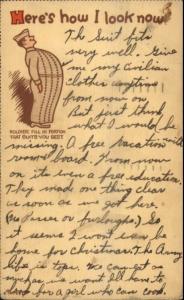 Here's how I look now
The Suit fits
very well. Give
me my civilian
clothes anytime
from now on
But just think,
what I would be
missing. A free vacation with
room & board. From now
on its even a free education.
They made one thing clear
as soon as we got here
(no Passes or furloughs) So
it seems I wont even be
home for christmas. The Army
life is tops. We can eat as
much as we want. I'll have to
look for a girl who can cook.
SOLDIER, FILL IN PORTION
THAT SUITS YOU BEST